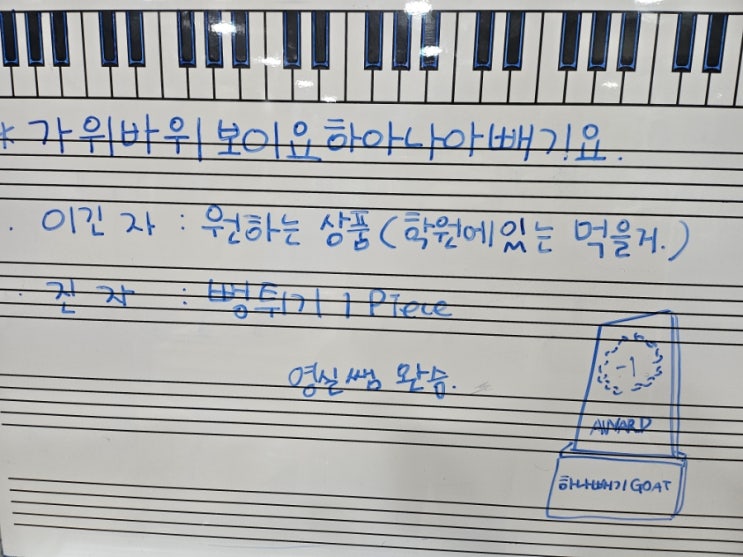 * 가위바위보이요하아나아빼기요.
· 이긴 자 : 원하는 상품 (학원에있는 먹을거.)
· 진 자 : 뻥튀기 1 Piece
영실쌤 완승.
-1
AWARD
하나빼기 GOAT